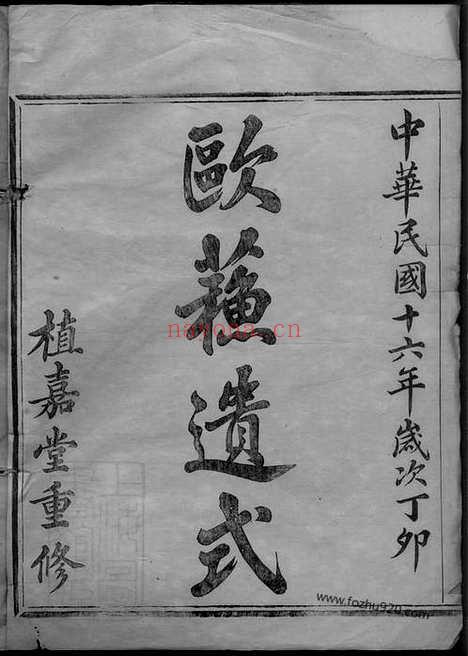 中華民國十六年歲次丁卯
歐蘓遺式
植嘉堂重修
nayona.cn
www.fozhu920.com